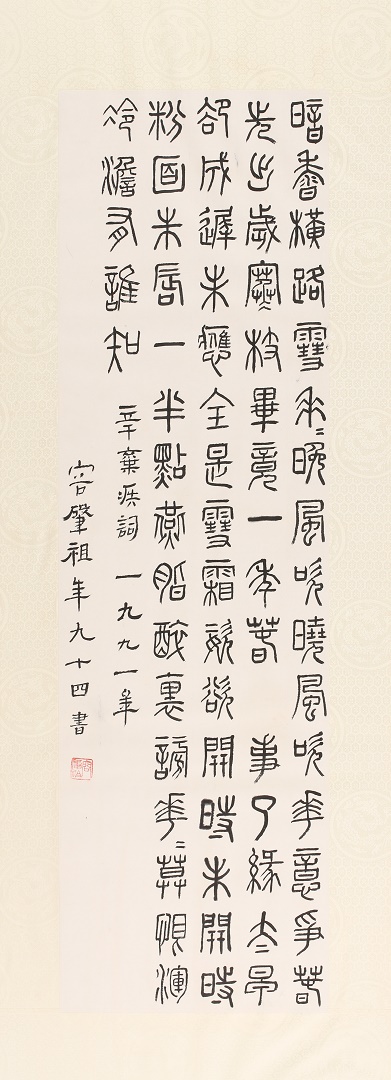 暗香橫路雪垂〻晚風吹曉風吹花意爭春
先出歲寒枝畢竟一年春事了緣太早
卻成遲未應全是雪霜姿欲開時未開時
粉面朱唇一半點燕脂醉裏謗花〻莫恨渾
冷澹有誰知
辛棄疾詞 一九九一年
容肇祖年九十四書